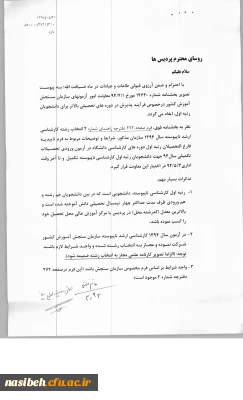 روسای محترم پردیس ها
سلام علیکم
با احترام و ضمن آرزوی قبولی طاعات و عبادات در ماه ضیافت الله؛ به پیوست
تصویر بخشنامه شماره ۱۹۲۶۰ مورخ ۹۴/۴/۱ معاونت امور آزمونهای سازمان سنجش
آموزش کشور درخصوص فرآیند پذیرش در دوره های تحصیلی بالاتر برای دانشجویان
رتبه اول، ایفاد می گردد.
نظر به بخشنامه فوق، فرم صفحه ۲۷۳ دفترچه راهنمای شماره ۲ انتخاب رشته کارشناسی
ارشد ناپیوسته سال ۱۳۹۴ سازمان مذکور، شرایط و توضیحات مربوط به فرم تاییدیه
فارغ التحصیلان رتبه اول دوره های کارشناسی دانشگاه در آزمون ورودی تحصیلات
تکمیلی سال ۹۴ جهت دانشجویان رتبه اول کارشناسی ناپیوسته تکمیل و تا آخر وقت
اداری ۹۴/۵/۳ در اختیار این معاونت قرار گیرد.
تذکرات بسیار مهم:
۱- رتبه اول کارشناسی ناپیوسته، دانشجویی است که در بین دانشجویان هم رشته و
هم ورودی ظرف مدت حداکثر چهار نیمسال تحصیلی دانش آموخته شده است و
بالاترین معدل (هررشته محل) در پردیس یا مرکز آموزش عالی محل تحصیل خود
را کسب نموده باشد.
۲- در آزمون سال ۱۳۹۴ کارشناسی ارشد ناپیوسته سازمان سنجش آموزش کشور
شرکت نموده و مجاز به انتخاب رشته شده و واجد شرایط لازم باشد.
توجه: (الزاما تصویر کارنامه علمی مجاز به انتخاب رشته ضمیمه شود)
۳- واجد شرایط بر اساس فرم مخصوص سازمان سنجش باشد (این فرم درصفحه ۲۷۳
دفترچه شماره ۲ موجود است)
nasibeh.cfu.ac.ir